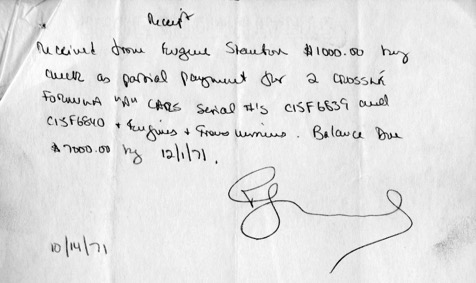 Receipt
Received from Eugene Stanton $1000.00 by
check as partial payment for 2 CROSSLÉ
FORMULA "A" CARS Serial #'s C15F6839 and
C15F6840 + Engines + Transmissions. Balance Due
$7000.00 by 12/1/71.
10/14/71